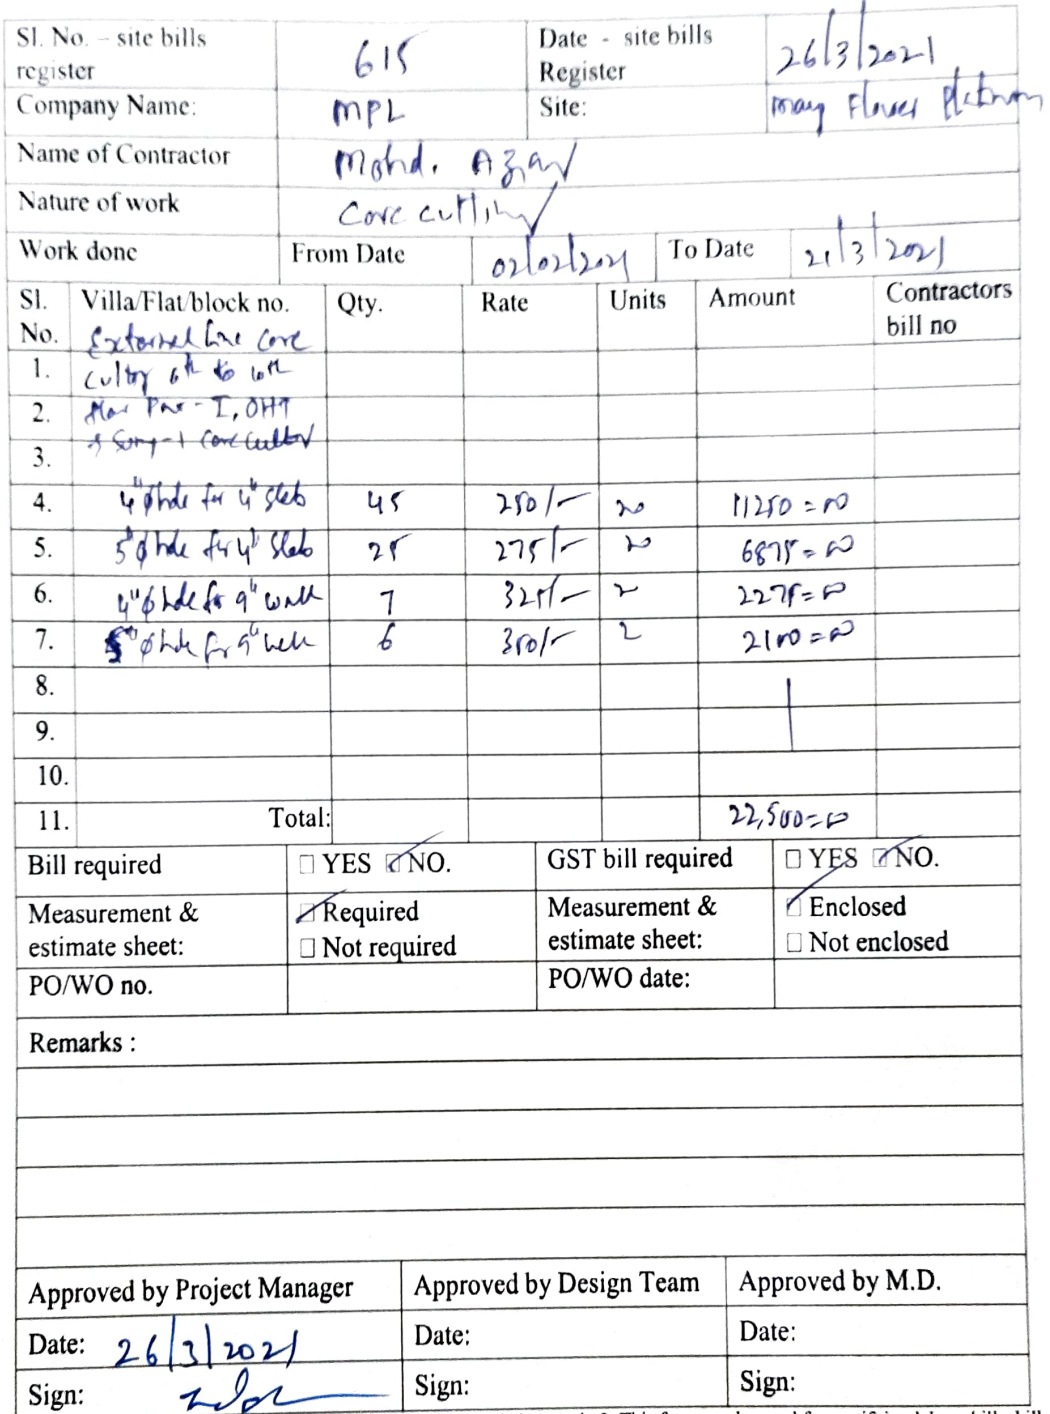 Sl. No. – site bills register 615 Date - site bills Register 26/3/2021
Company Name: MPL Site: May Flower Platinum
Name of Contractor Mohd. Azar
Nature of work Core cutting
Work done From Date 02/02/2021 To Date 21/3/2021
Sl. No. Villa/Flat/block no. Qty. Rate Units Amount Contractors bill no
External line core
1. cutting 6th to 10th
2. I, OHT
3. core cutting
4. 4"φ hole for 4" slab 45 250/- 11250=00
5. 5"φ hole for 4" slab 25 275/- 6875=00
6. 4"φ hole for 9" wall 7 325/- 2275=00
7. 5"φ hole for 9" wall 6 350/- 2100=00
8.
9.
10.
11. Total: 22,500=00
Bill required ☐ YES ☑ NO. GST bill required ☐ YES ☑ NO.
Measurement & estimate sheet: ☑ Required Measurement & estimate sheet: ☑ Enclosed
☐ Not required ☐ Not enclosed
PO/WO no. PO/WO date:
Remarks :
Approved by Project Manager Approved by Design Team Approved by M.D.
Date: 26/3/2021 Date: Date:
Sign: Sign: Sign: